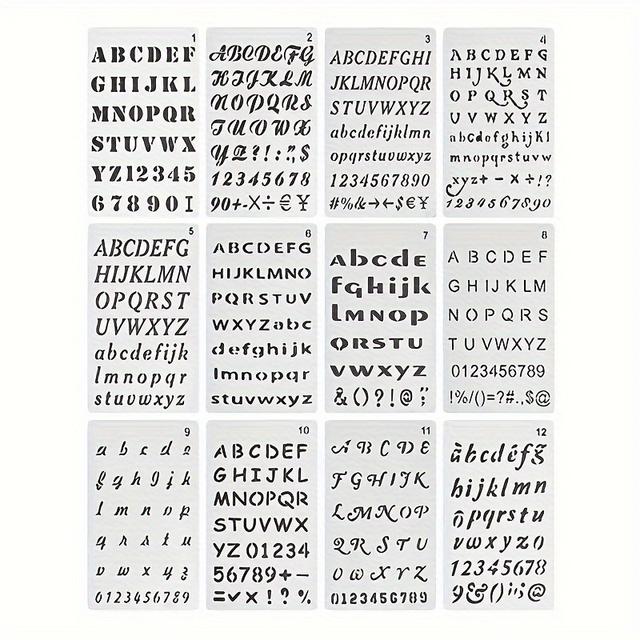 1
ABCDEF
GHIJKL
MNOPQR
STUVWX
YZ12345
67890I
2
ABCDEFG
HIJKLM
NOPQRS
TUVWX
YZ?!:;"$
12345678
90+-×÷€¥
3
ABCDEFGHI
JKLMNOPQR
STUVWXYZ
abcdefijklmn
opqrstuvwxyz
1234567890
#%&→←$€¥
4
ABCDEFG
HIJKLMN
OPQRST
UVWXYZ
abcdefghijkl
mnopqrstuvw
xyz+-×÷!?
1234567890
5
ABCDEFG
HIJKLMN
OPQRST
UVWXYZ
abcdefijk
lmnopqr
stuvwxyz
6
ABCDEFG
HIJKLMNO
PQRSTUV
WXYZabc
defghijk
lmnopqr
stuvwxyz
7
abcde
fghijk
lmnop
qrstu
vwxyz
&()?!@;
8
ABCDEF
GHIJKLM
NOPQRS
TUVWXYZ
0123456789
!%/()=?#.,$@
9
a b c d e
f g h i j k
l m n o p
q r s t u
v w x y z
0123456789
10
ABCDEF
GHIJKL
MNOPQR
STUVWX
YZ01234
56789+-
=✓×!?%
11
ABCDE
FGHIJK
LMNOP
QRSTU
VWXYZ
0123456789
12
àbcdéfg
hijklmn
öpqrstu
vwxyz0
12345678
9&()!;@